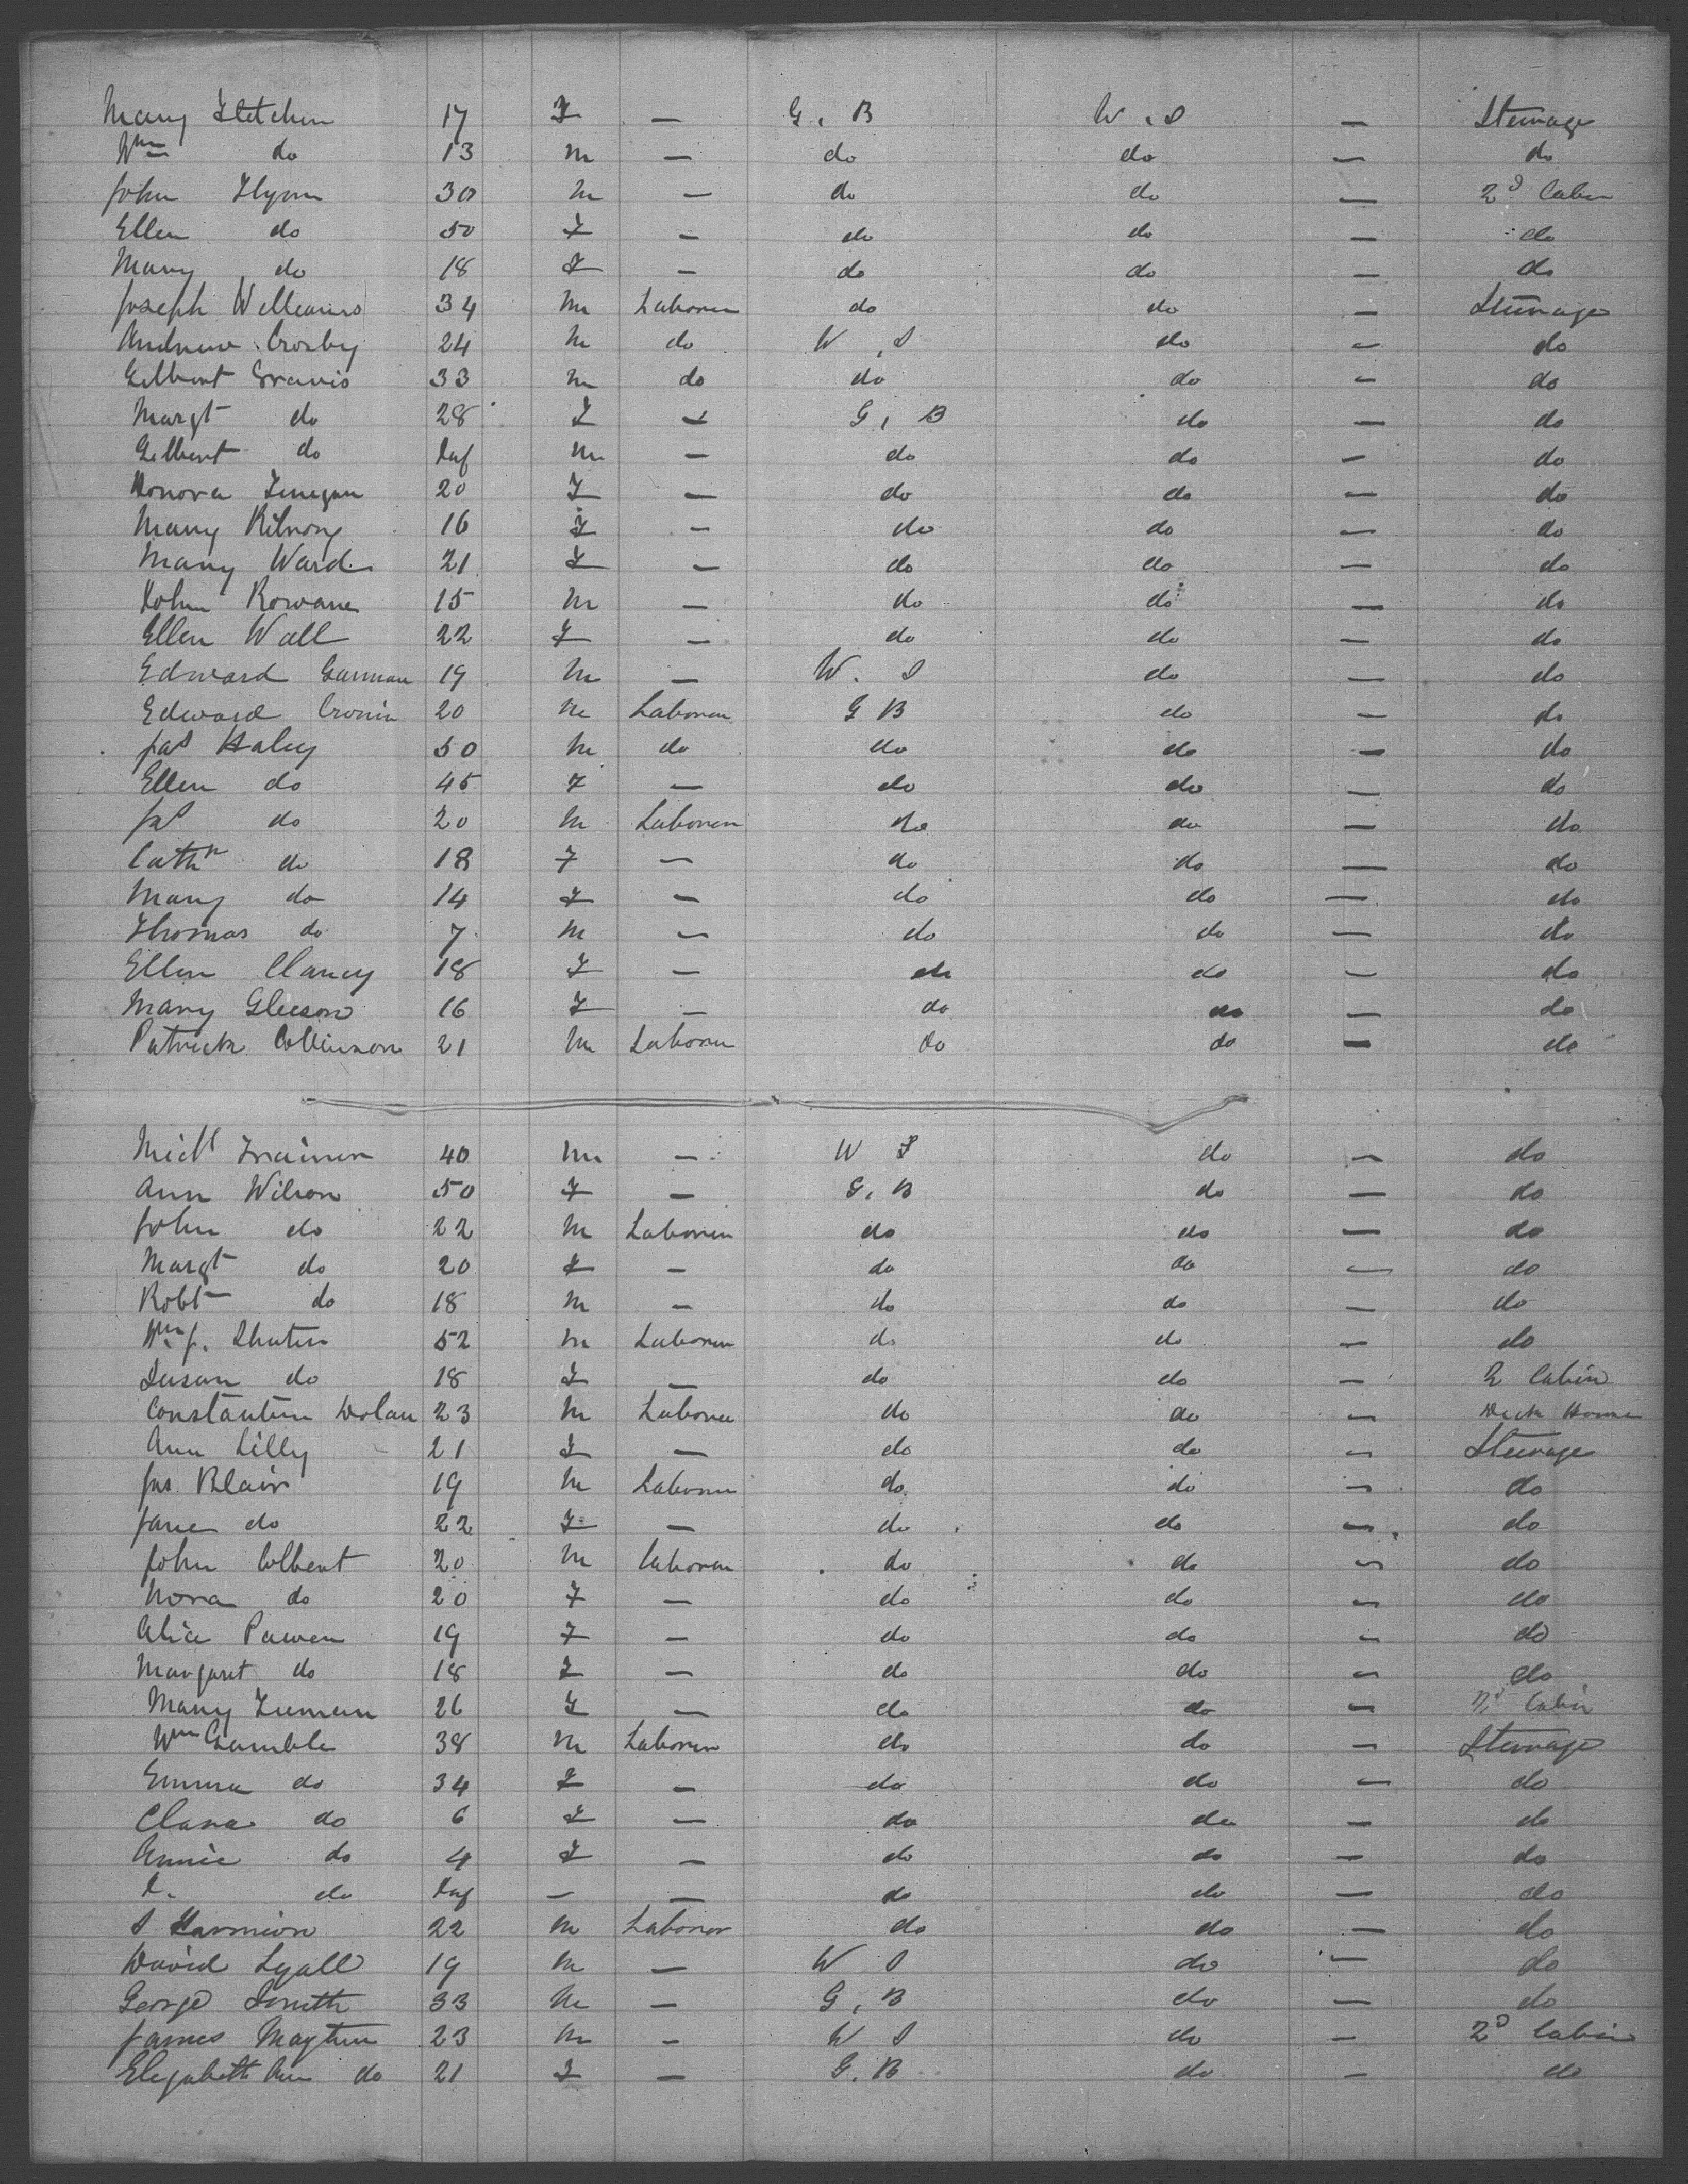 Mary Fletcher 17 F — G. B W. S — Steerage
Wm do 13 M — do do — do
John Flynn 30 M — do do — 2d Cabin
Ellen do 50 F — do do — do
Mary do 18 F — do do — do
Joseph Williams 34 M Laborer do do — Steerage
Andrew Crosby 24 M do W. S do — do
Gilbert Travis 33 M do do do — do
Margt do 28 F — G. B do — do
Gilbert do Inf M — do do — do
Honora Finegan 20 F — do do — do
Mary Kilroy 16 F — do do — do
Mary Ward 21 F — do do — do
John Rowane 15 M — do do — do
Ellen Wall 22 F — do do — do
Edward Garman 19 M — W. S do — do
Edward Cronin 20 M Laborer G B do — do
Jas Haley 50 M do do do — do
Ellen do 45 F — do do — do
Jas do 20 M Laborer do do — do
Cathn do 18 F — do do — do
Mary do 14 F — do do — do
Thomas do 7 M — do do — do
Ellen Clancy 18 F — do do — do
Mary Gleeson 16 F — do do — do
Patrick Collinson 21 M Laborer do do — do
Michl Trainer 40 M — W S do — do
Ann Wilson 50 F — G. B do — do
John do 22 M Laborer do do — do
Margt do 20 F — do do — do
Robt do 18 M — do do — do
Wm J. Shuter 52 M Laborer do do — do
Susan do 18 F — do do — 2 Cabin
Constantine Dolan 23 M Laborer do do — Deck House
Ann Lilly 21 F — do do — Steerage
Jas Blair 19 M Laborer do do — do
Jane do 22 F — do do — do
John Colbert 20 M laborer do do — do
Nora do 20 F — do do — do
Alice Power 19 F — do do — do
Margaret do 18 F — do do — do
Mary 26 F — do do — 2d Cabin
Wm Gamble 38 M Laborer do do — Steerage
Emma do 34 F — do do — do
Clara do 6 F — do do — do
Annie do 4 F — do do — do
do Inf — — do do — do
S Harmion 22 M Laborer do do — do
David Lyall 19 M — W S do — do
George Smith 33 M — G. B do — do
James Maytum 23 M — W S do — 2d Cabin
Elizabeth Ann do 21 F — G. B do — do